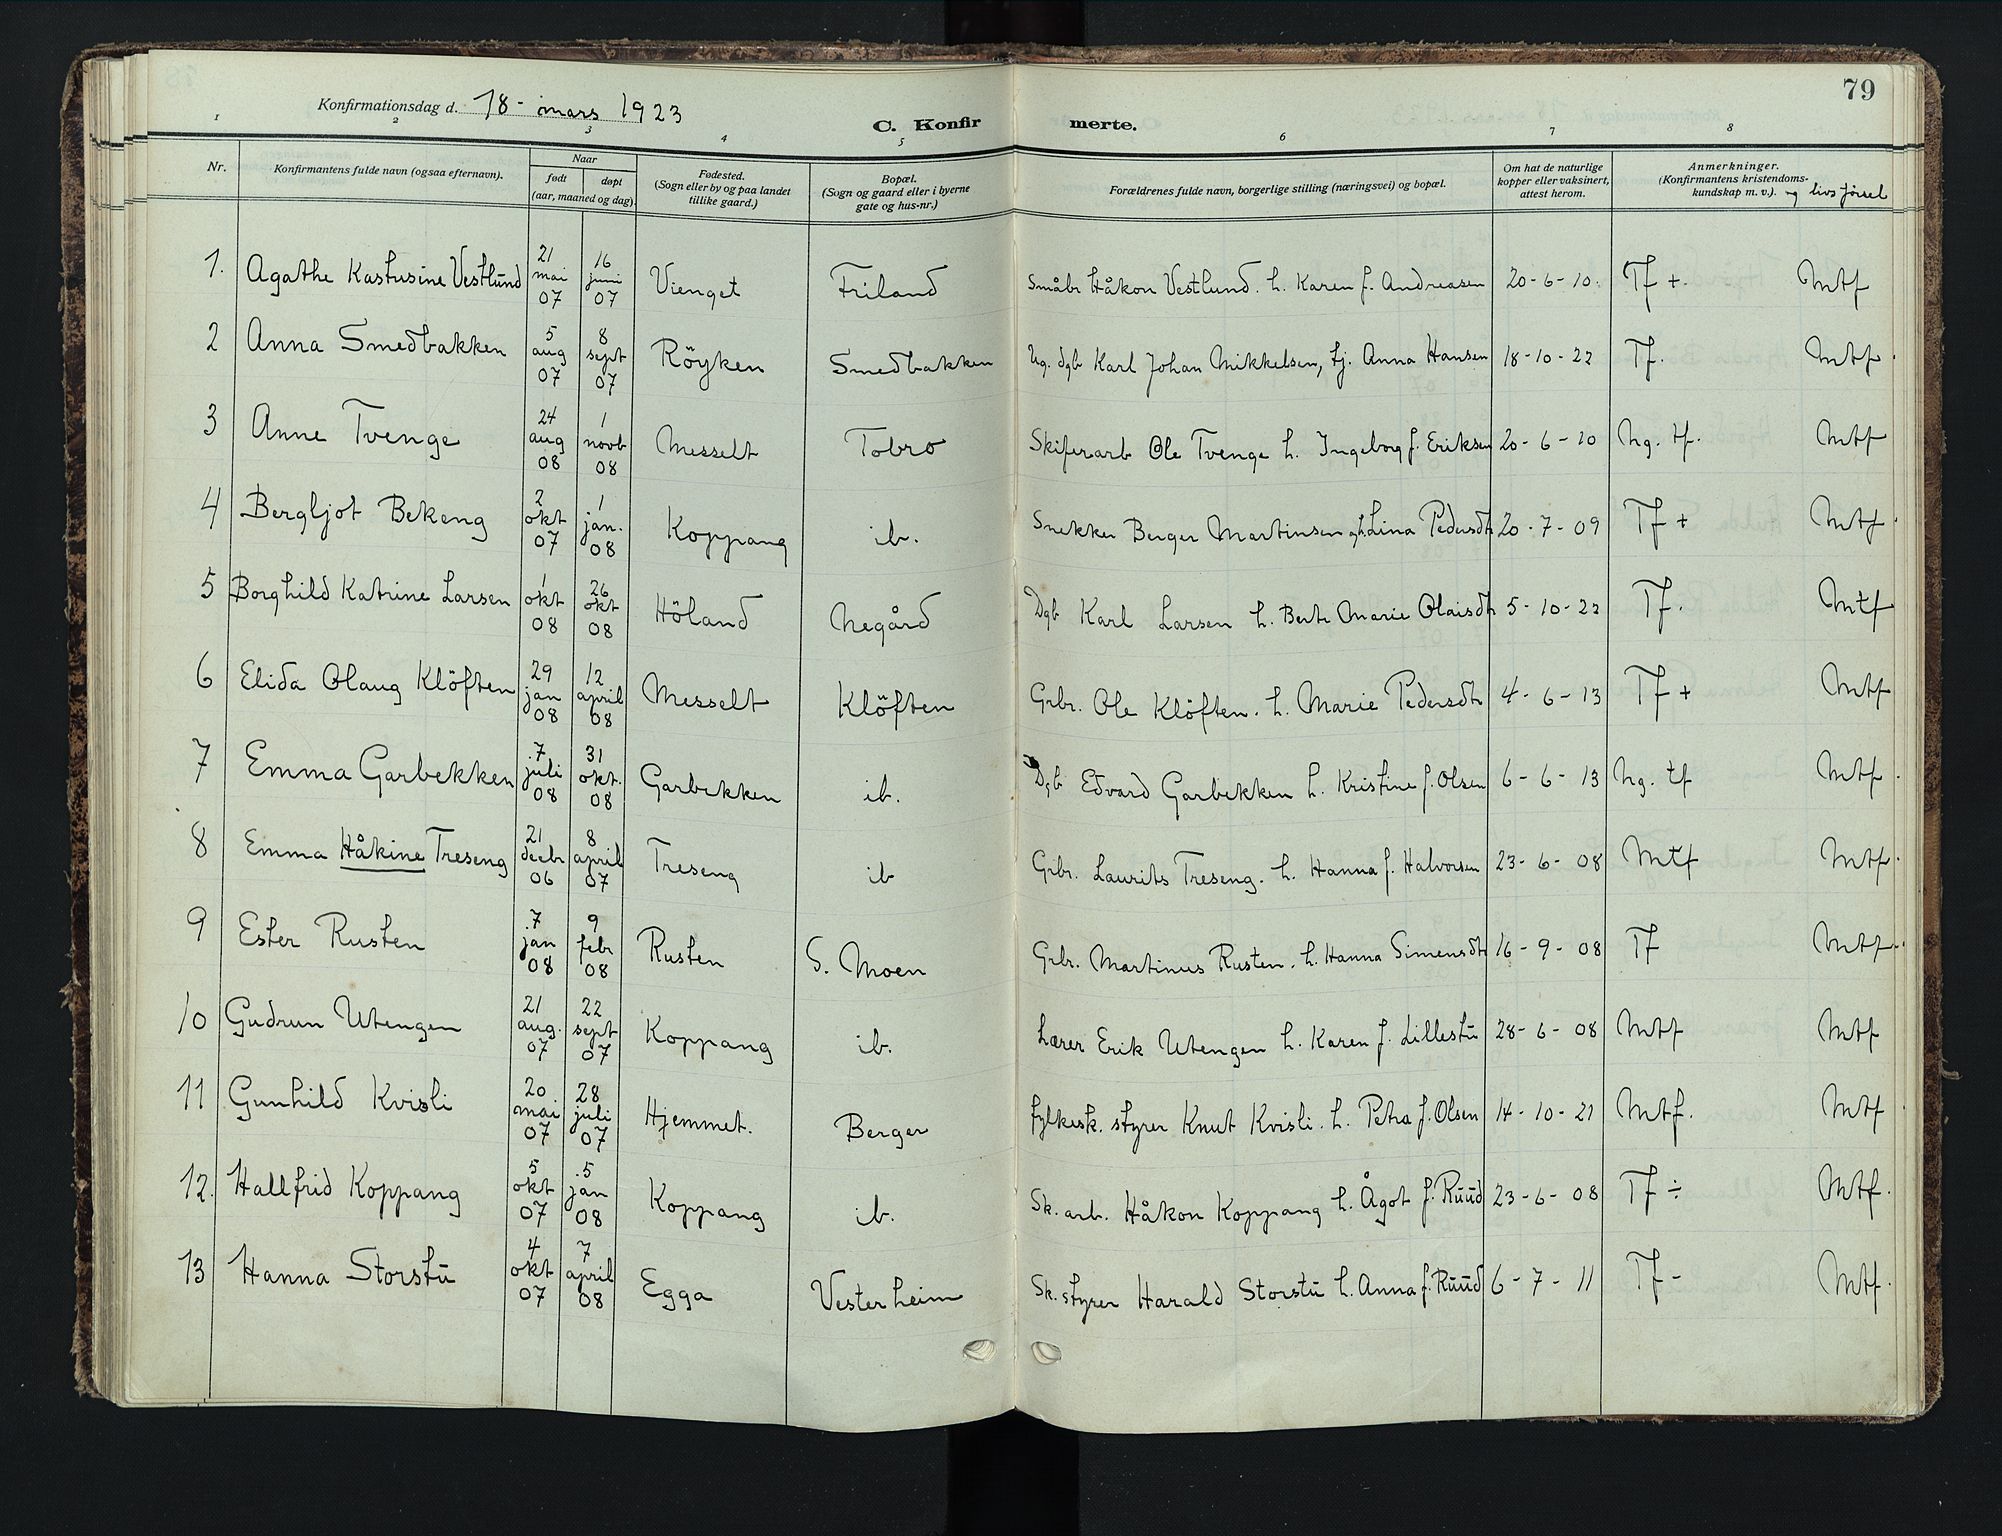 79
Konfirmationsdag d. 18- mars 1923
C. Konfirmerte.
1 2 3 4 5 6 7 8
Nr. Konfirmantens fulde navn (ogsaa efternavn). Naar født døpt (aar, maaned og dag) Fødested. (Sogn eller by og paa landet tillike gaard.) Bopæl. (Sogn og gaard eller i byerne gate og hus-nr.) Forældrenes fulde navn, borgerlige stilling (næringsvei) og bopæl. Om hat de naturlige kopper eller vaksinert, attest herom. Anmerkninger. (Konfirmantens kristendoms-kundskap m. v.). og livsførsel
1. Agathe Kastusine Vestlund 21 mai 07 16 juni 07 Vienget Friland Småbr Håkon Vestlund. h. Karen f. Andreasen 20-6-10. Tf +. Mtf
2 Anna Smedbakken 5 aug 07 8 sept 07 Röyken Smedbakken Ug. dgb Karl Johan Mikkelsen, tj. Anna Hansen 18-10-22 Tf. Mtf.
3 Anne Tvenge 24 aug 08 1 novb 08 Messelt Tobro Skiferarb Ole Tvenge h. Ingeborg f. Eriksen 20-6-10 Ng. tf. Mtf
4 Bergljot Bekeng 2 okt 07 1 jan. 08 Koppang ib. Snekker Berger Martinsen og h. Lina Pedersdtr 20-7-09 Tf + Mtf.
5 Borghild Katrine Larsen 1 okt 08 26 okt 08 Höland Negård Dgb Karl Larsen h. Berte Marie Olaisdtr 5-10-22 Tf. Mtf
6 Elida Olaug Klöften 29 jan 08 12 april 08 Messelt Klöften Grbr. Ole Klöften. h. Marie Pedersdtr 4-6-13 Tf + Mtf
7 Emma Garbekken 7 juli 08 31 okt. 08 Garbekken ib. Dgb Edvard Garbekken h. Kristine f. Olsen 6-6-13 Ng. tf Mtf.
8 Emma Håkine Treseng 21 decbr 06 8 april 07 Treseng ib Grbr. Laurits Treseng. h. Hanna f. Halvorsen 23-6-08 Mtf Mtf.
9 Ester Rusten 7 jan 08 9 febr 08 Rusten S. Moen Grbr. Martinus Rusten. h. Hanna Simensdtr 16-9-08 Tf Mtf.
10 Gudrun Utengen 21 aug. 07 22 sept 07 Koppang ib. Lærer Erik Utengen h. Karen f. Lillestu 28-6-08 Mtf Mtf
11 Gunhild Kvisli 20 mai 07 28 juli 07 Hjemmet. Berger fylkesk. styrer Knut Kvisli. h. Petra f. Olsen 14-10-21 Mtf. Mtf.
12. Hallfrid Koppang 5 okt 07 5 jan 08 Koppang ib. Sk. arb. Håkon Koppang h. Ågot f. Ruud 23-6-08 Tf ÷ Mtf.
13 Hanna Storstu 4 okt 07 7 april 08 Egga Vesterheim Sk. styrer Harald Storstu h. Anna f. Ruud 6-7-11 Tf - Mtf.